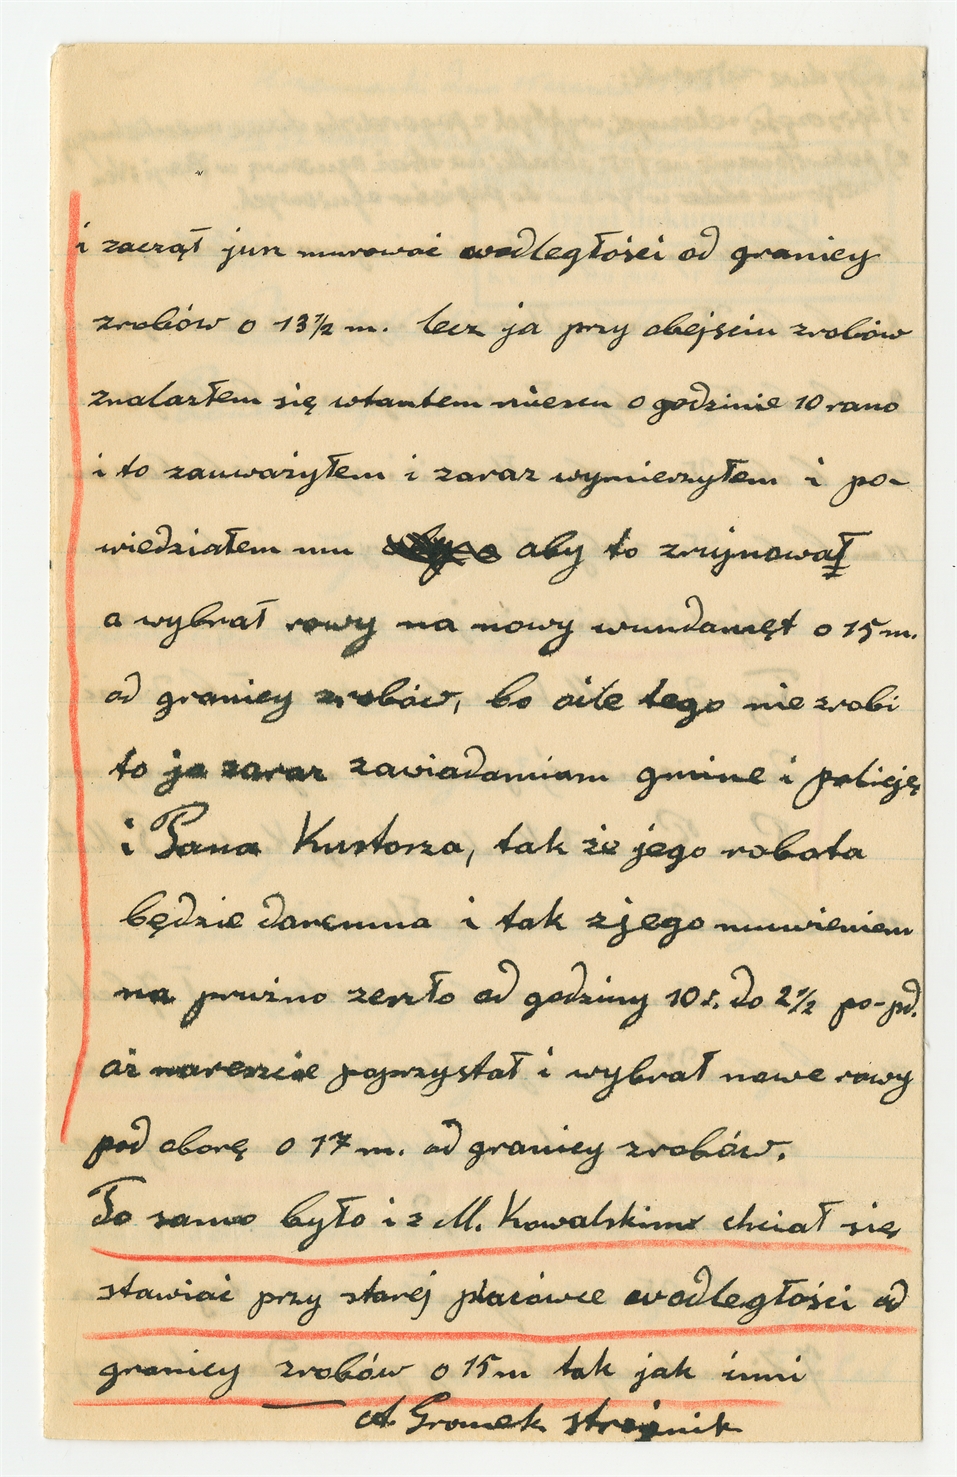 i zaczął jusz murować wodległości od granicy
zrobów o 13½ m. lecz ja przy obejsciu zrobów
znalazłem się wtamtem miescu o godzinie 10 rano
i to zauważyłem i zaraz wymierzyłem i po-
wiedziałem mu aby to zrujnował
a wybrał rowy na nowy wundamęt o 15 m.
od granicy zrobów, bo oile tego nie zrobi
to ja zaraz zawiadamiam gmine i policję
i Pana Kustosza, tak że jego robota
będzie daremna i tak zjego muwieniem
na prużno zeszło od godziny 10 r. do 2½ po-pd.
aż nareszcie poprzystał i wybrał nowe rowy
pod oborę o 17 m. od granicy zrobów.
To samo było i z M. Kowalskim chciał się
stawiać przy starej placówce wodległości od
granicy zrobów o 15 m tak jak inni
A. Gromek strojnik